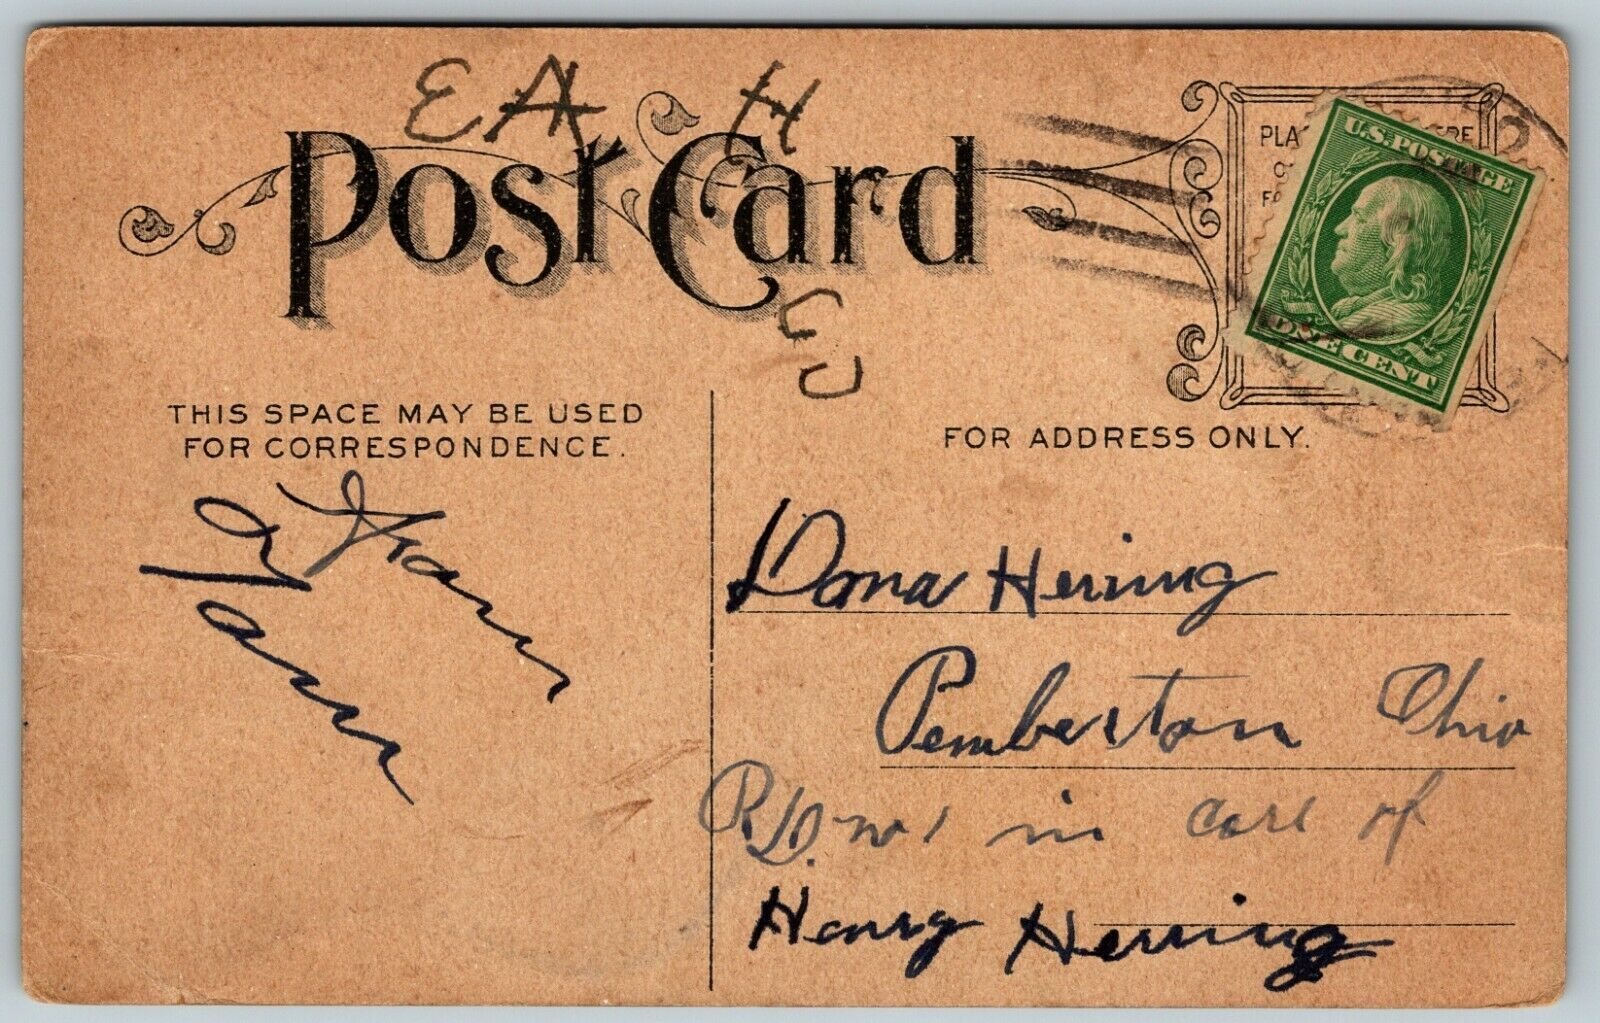 E A H
Post Card
E J
PLA RE
U.S. POSTAGE
ONE CENT
THIS SPACE MAY BE USED
FOR CORRESPONDENCE.
FOR ADDRESS ONLY.
From
Dona Herring
Pemberton Ohio
R.D. no 1 in care of
Henry Herring